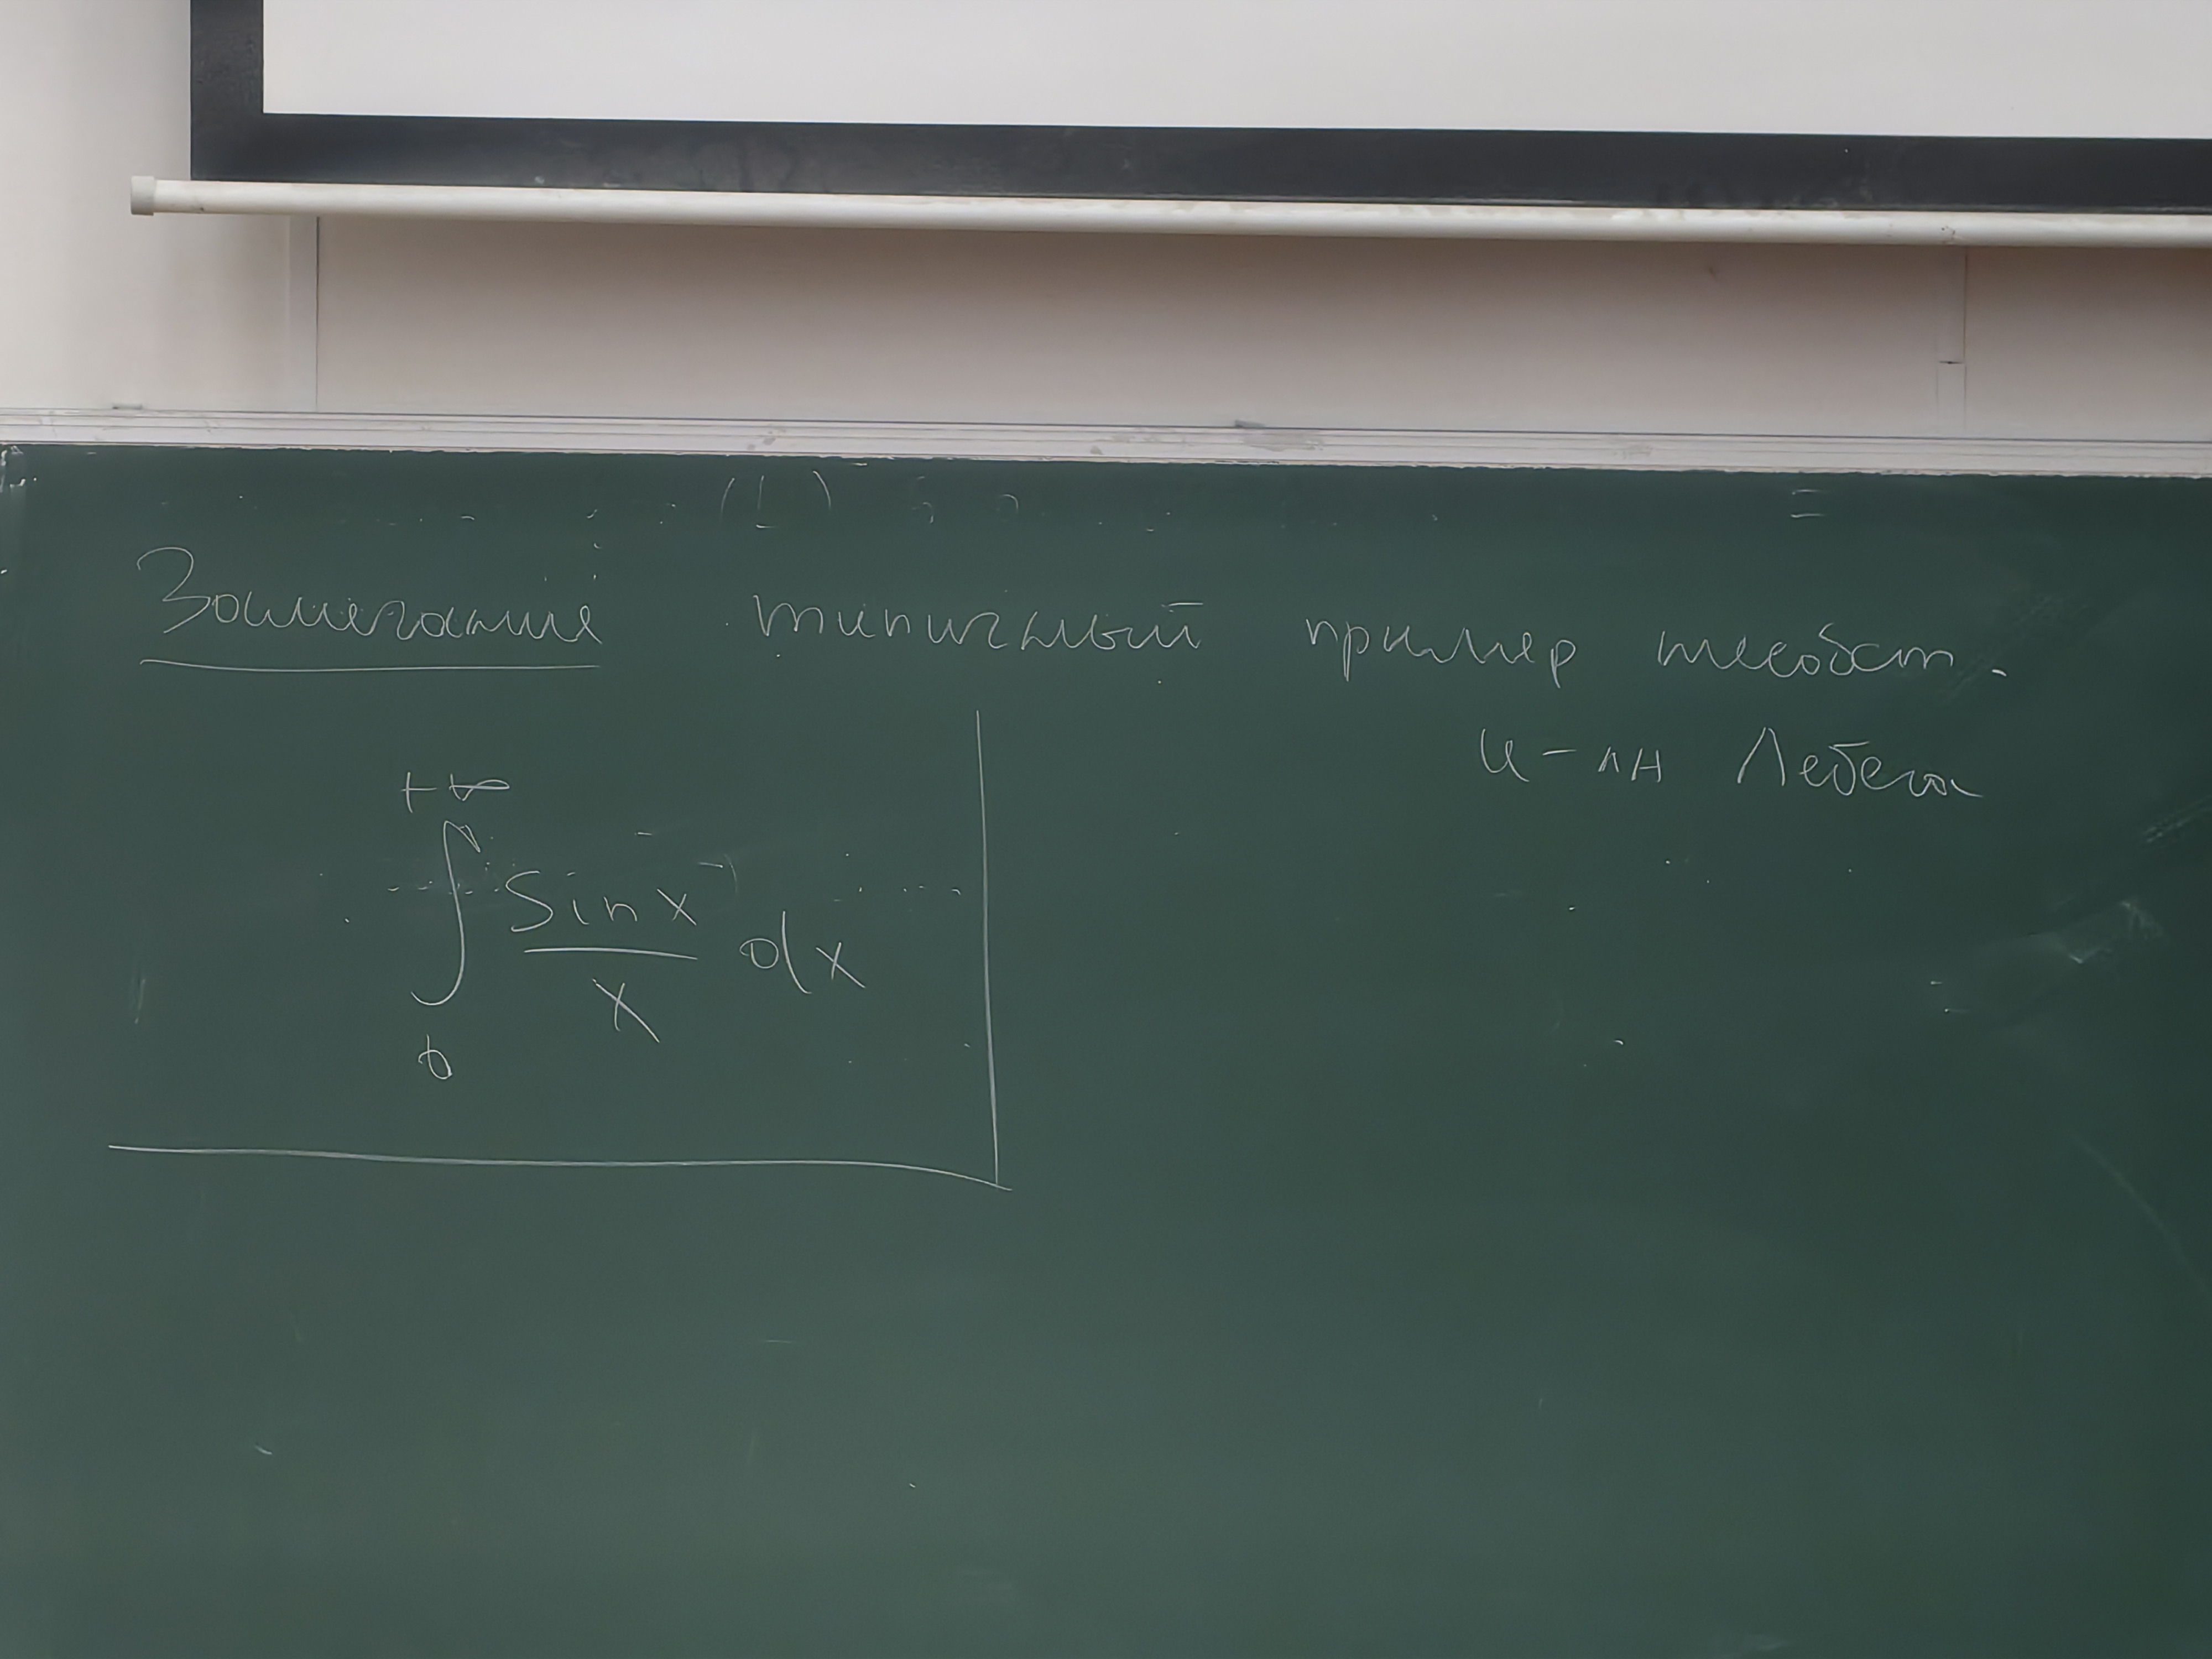 Замечание типичный пример несобст.
и-лн Лебега
+∞
∫ sin x / x dx
0